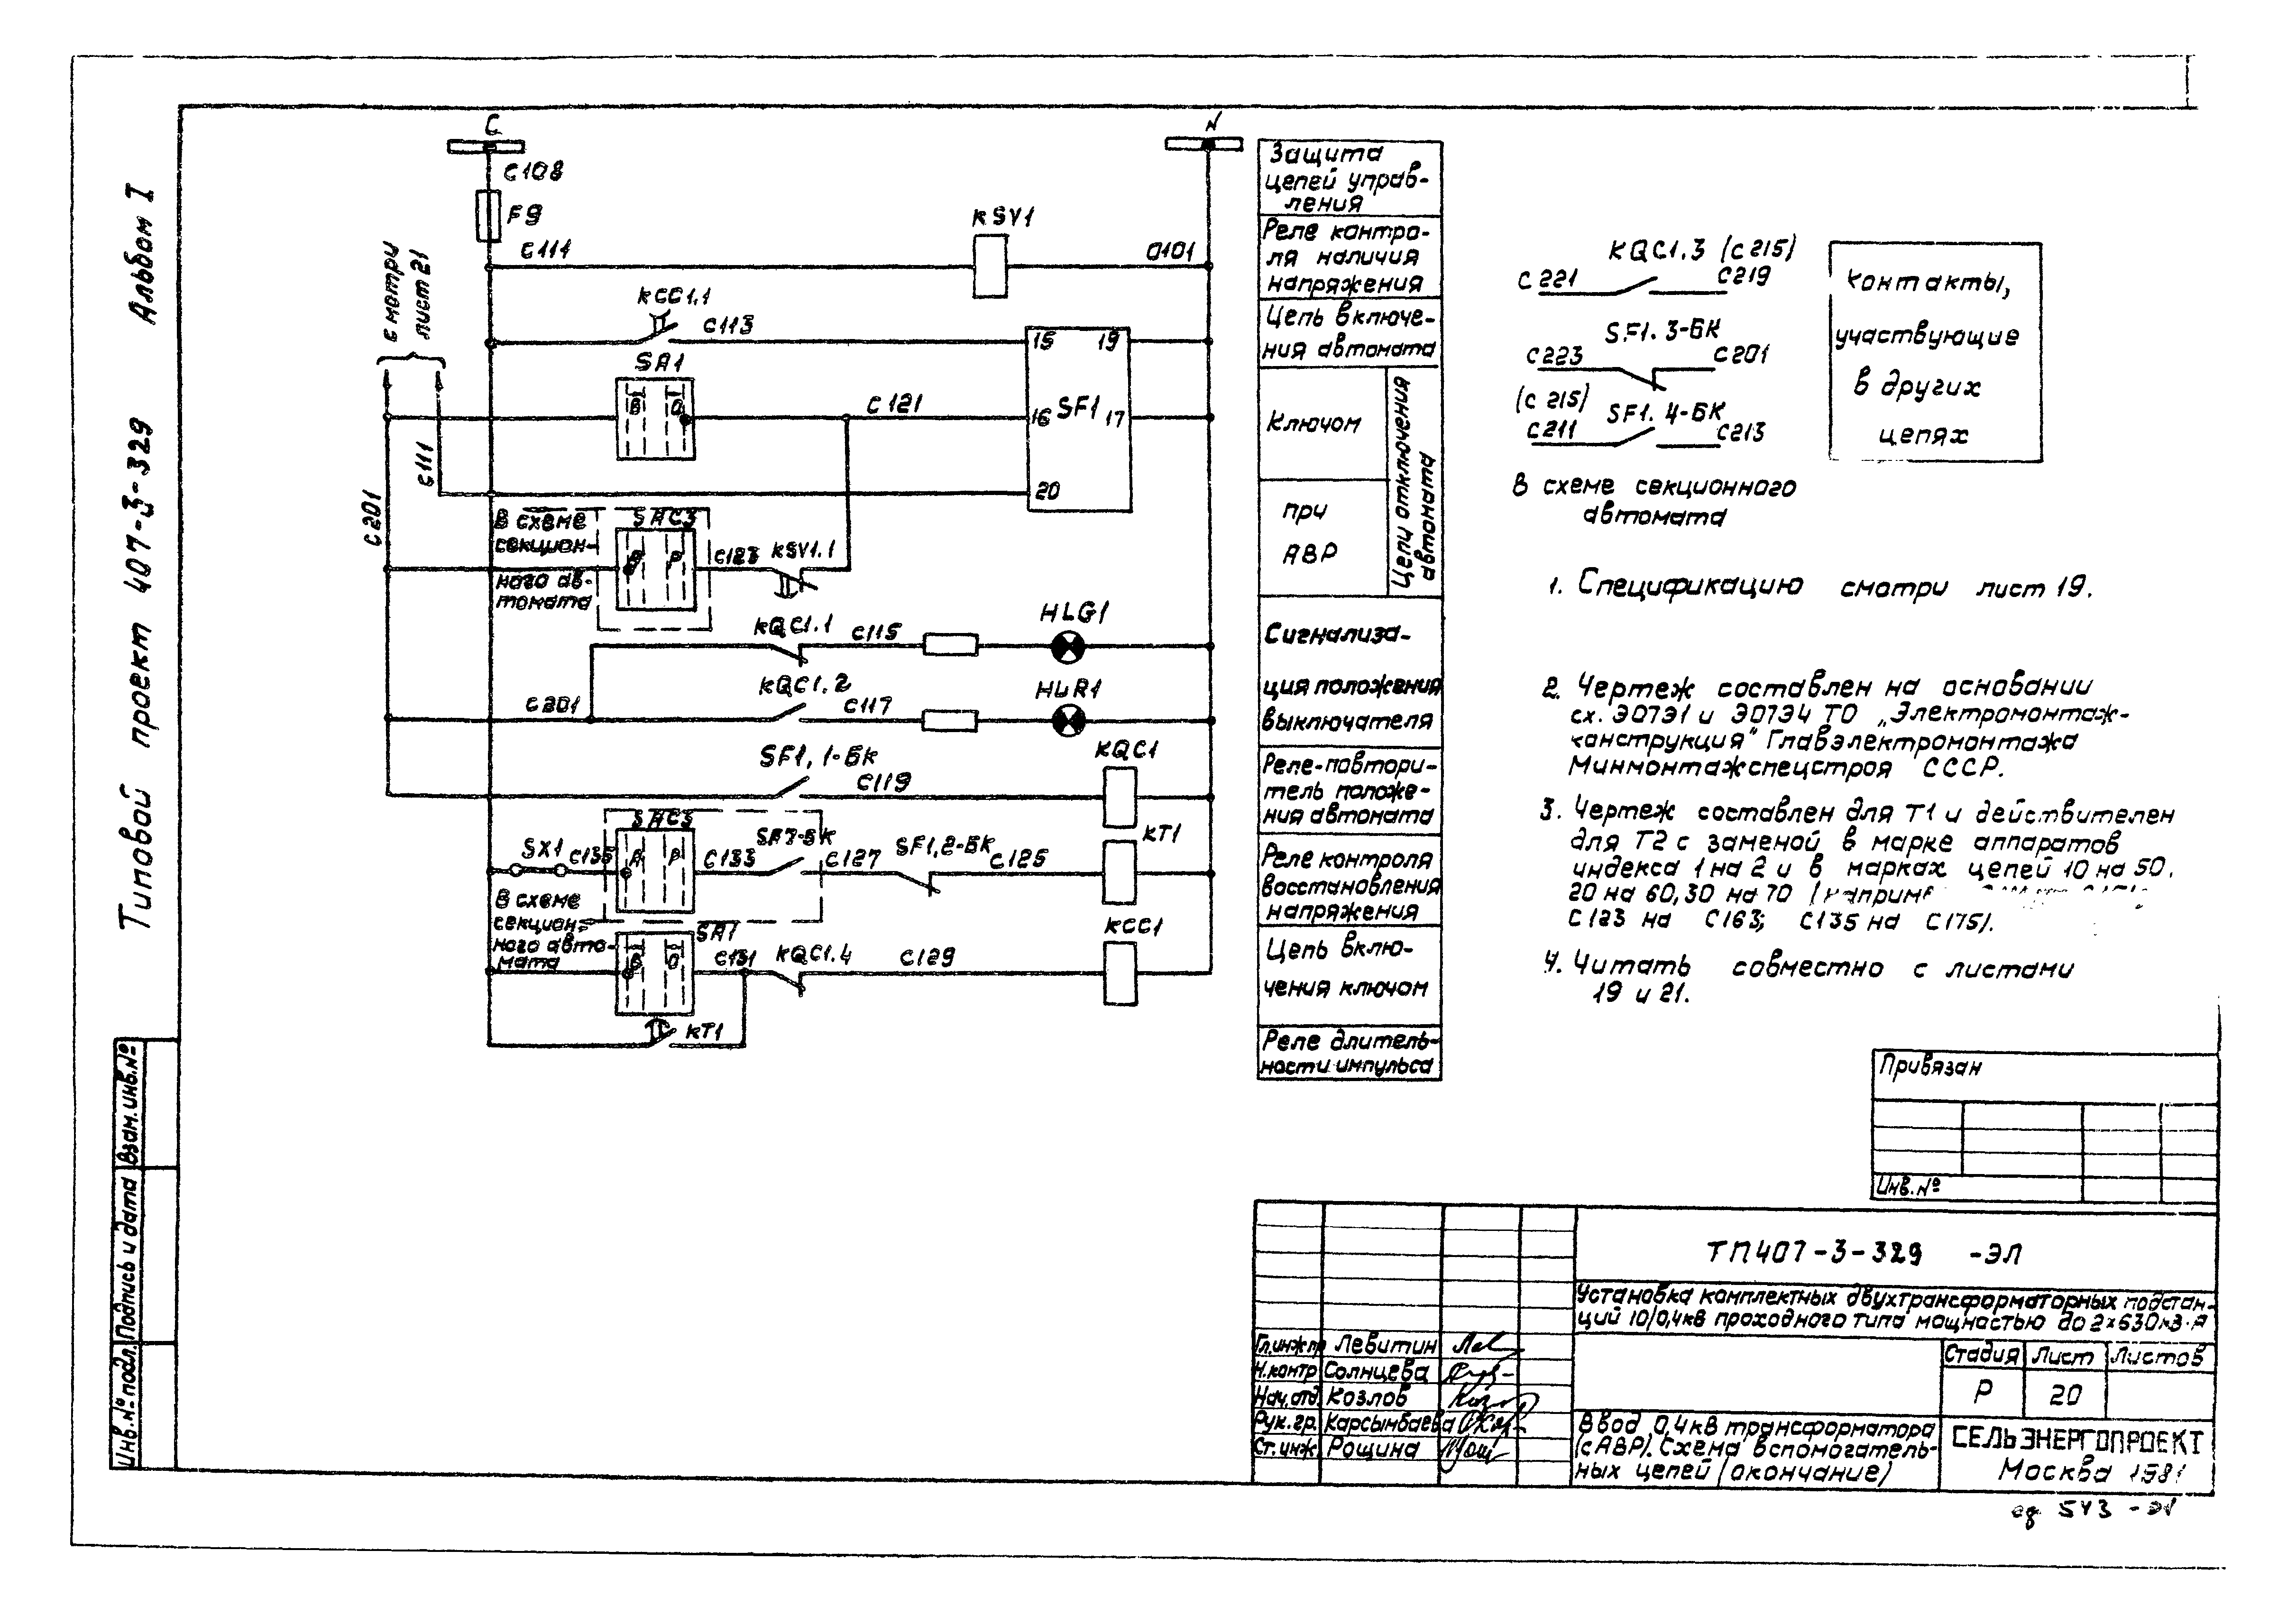 Альбом I
Типовой проект 407-3-329
C
N
C108
F9
C111
KSV1
0101
с мотри
лист 21
KCC1.1
C113
15
19
SA1
В
О
C121
16
SF1
17
C111
20
C201
В схеме
секцион-
ного ав-
томата
SAC3
Р
C123
KSV1.1
KQC1.1
C115
HLG1
C201
KQC1.2
C117
HLR1
SF1,1-БК
C119
KQC1
SX1
C135
SAC3
Р
C133
C127
SF1,2-БК
C125
KT1
В схеме
секцион-
ного авто-
мата
SA1
В
О
C131
KQC1.4
C129
KCC1
KT1
Защита
цепей управ-
ления
Реле контро-
ля наличия
напряжения
Цепь включе-
ния автомата
Ключом
при
АВР
Цепи отключения
автомата
Сигнализа-
ция положения
выключателя
Реле-повтори-
тель положе-
ния автомата
Реле контроля
восстановления
напряжения
Цепь вклю-
чения ключом
Реле длитель-
ности импульса
KQC1.3 (C215)
C221
C219
SF1.3-БК
C223
C201
(C215)
SF1.4-БК
C211
C213
Контакты,
участвующие
в других
цепях
В схеме секционного
автомата
1. Спецификацию смотри лист 19.
2. Чертеж составлен на основании
сх. ЭО7Э1 и ЭО7Э4 ТО „Электромонтаж-
конструкция" Главэлектромонтажа
Минмонтажспецстроя СССР.
3. Чертеж составлен для Т1 и действителен
для Т2 с заменой в марке аппаратов
индекса 1 на 2 и в марках цепей 10 на 50,
20 на 60, 30 на 70
C123 на C163; C135 на C175).
4. Читать совместно с листами
19 и 21.
Привязан
Инв.№
Взам.инв.№
Подпись и дата
Инв.№подл.
ТП407-3-329 -ЭЛ
Установка комплектных двухтрансформаторных подстан-
ций 10/0,4кв проходного типа мощностью до 2×630кВ·А
Гл.инж.пр Левитин
Н.контр Солнцева
Нач.отд. Козлов
Рук.гр. Карсымбаева
Ст.инж. Рощина
Стадия Лист Листов
Р 20
Ввод 0,4кв трансформатора
(с АВР). Схема вспомогатель-
ных цепей (окончание)
СЕЛЬЭНЕРГОПРОЕКТ
Москва 1981